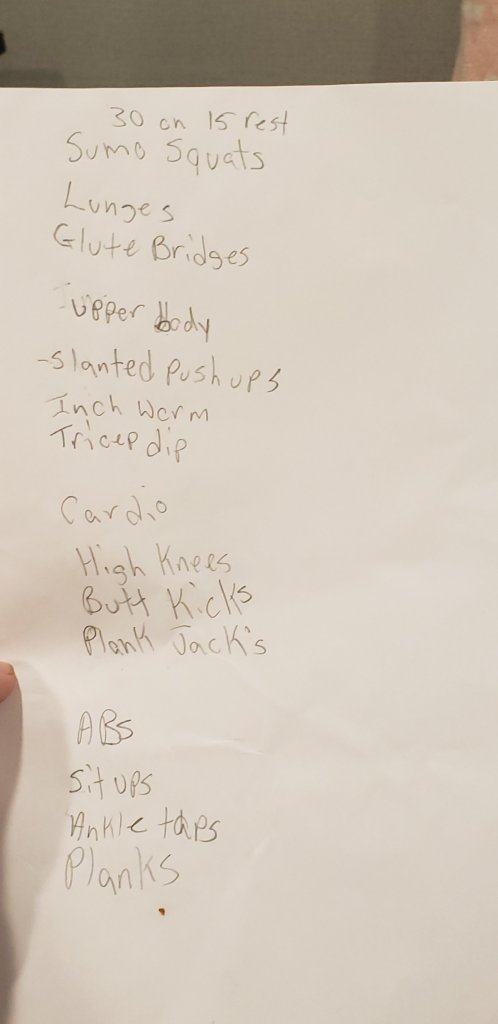 30 on 15 rest
Sumo Squats
Lunges
Glute Bridges
upper body
-slanted push ups
Inch Worm
Tricep dip
Cardio
High Knees
Butt Kicks
Plank Jack's
ABs
Sit ups
Ankle taps
Planks